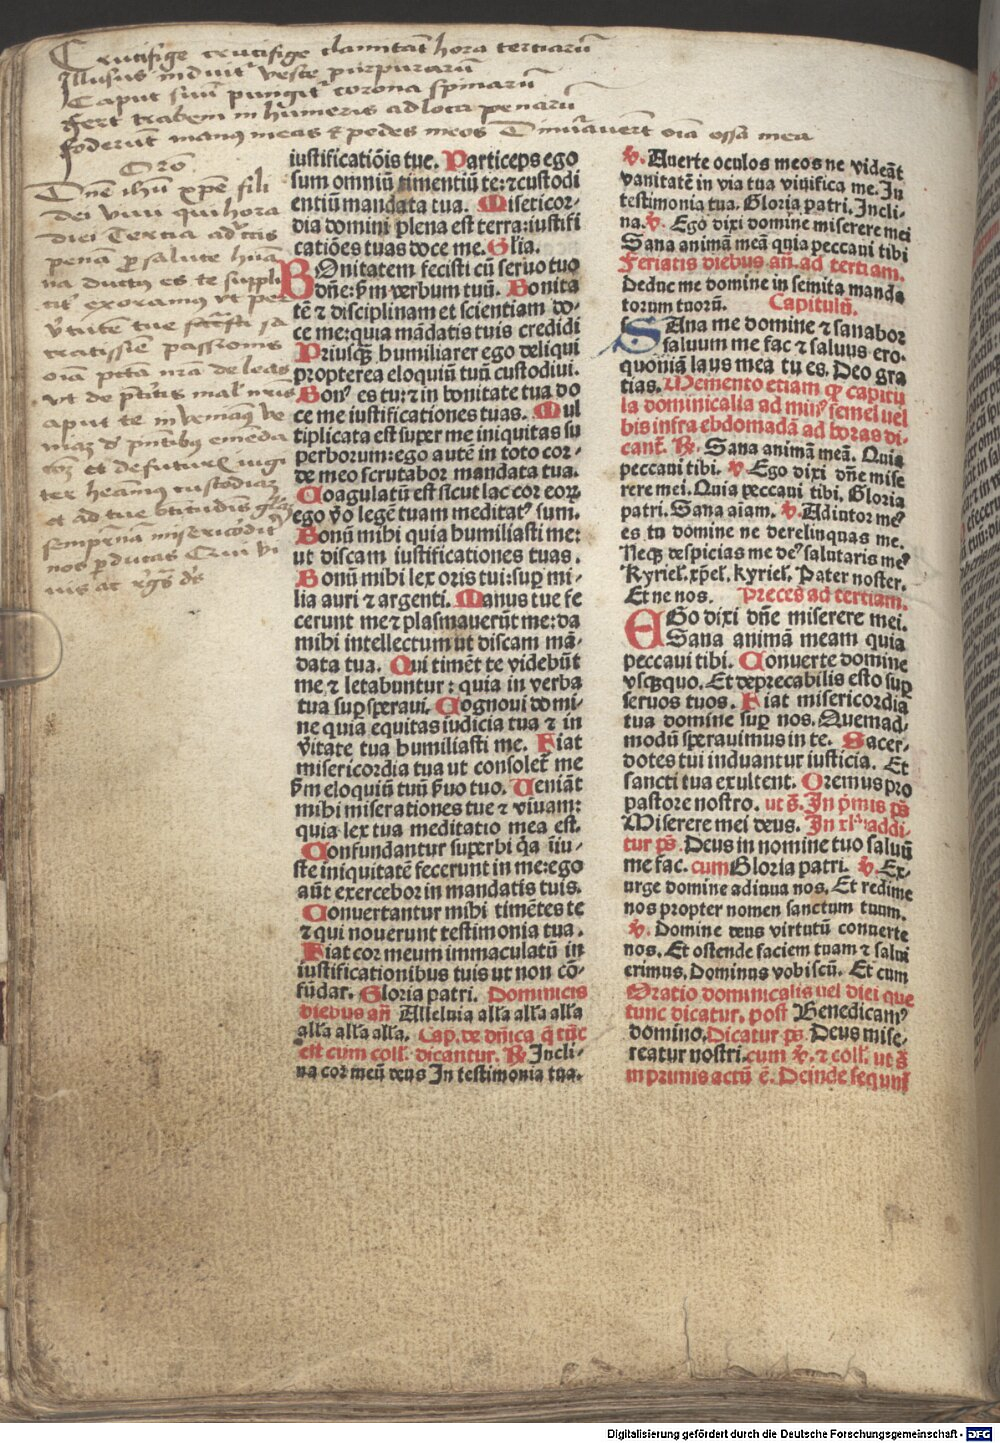 Crucifige crucifige clamitāt hora terciarū
Illusus induit᷑ veste purpurarū
Caput suū pungit᷑ corona spinarū
fert trabem in humeris ad loca penarū
foderūt manus meas et pedes meos Dinūauerūt oīa ossa mea
Orō
Dne ihū xpe fili
dei viui qui hora
diei Tercia ad
penā p salute hūa
na ductus es te suppli
exoramus vt per
v̄tutem tue
passionis
oīa pctā nrā deleas
vt de
aput te inueniamus ve
niaz
et de futuris iugi
ter heāmus custodiaz
et ad tue
sempnā misericordit᷑
nos pducas Qui vi
uis ac regs ds
iustificatiōis tue. Particeps ego
sum omniū timentiū te: ⁊ custodi
entiū mandata tua. Misericor⸗
dia domini plena est terra: iustifi
catiōes tuas doce me. Glīa.
BOnitatem fecisti cū seruo tuo
dn̄e: ꝑm verbum tuū. Bonita
tē ⁊ disciplinam et scientiam do⸗
ce me: quia mādatis tuis credidi
Priusqȝ humiliarer ego deliqui
propterea eloquiū tuū custodiui.
Bonꝰ es tu: ⁊ in bonitate tua do
ce me iustificationes tuas. Mul
tiplicata est super me iniquitas su
perborum: ego autē in toto cor⸗
de meo scrutabor mandata tua.
Coagulatū est sicut lac cor eoꝝ
ego v̄o legē tuam meditatꝰ sum.
Bonū mihi quia humiliasti me:
ut discam iustificationes tuas.
Bonū mihi lex oris tui: sup mi⸗
lia auri ⁊ argenti. Manus tue fe
cerunt me ⁊ plasmauerūt me: da
mihi intellectum ut discam mā⸗
data tua. Qui timēt te videbūt
me ⁊ letabuntur: quia in verba
tua sup speraui. Cognoui domi⸗
ne quia equitas iudicia tua ⁊ in
v̄itate tua humiliasti me. Fiat
misericordia tua ut consolet᷑ me
ꝑm eloquiū tuū ẜuo tuo. Ueniāt
mihi miserationes tue ⁊ viuam:
quia lex tua meditatio mea est.
Confundantur superbi q̄a iiu⸗
ste iniquitatē fecerunt in me: ego
aūt exercebor in mandatis tuis.
Conuertantur mihi timētes te
⁊ qui nouerunt testimonia tua.
Fiat cor meum immaculatū in
iustificationibus tuis ut non cō⸗
fūdar. Gloria patri. Dominicis
diebus an̄ Alleluia alla alla alla
alla alla alla. Cap. de dn̄ica q̄ tūc
est cum coll. dicantur. ℟. Incli⸗
na cor meū deus In testimonia tua.
℣. Auerte oculos meos ne videāt
vanitatē in via tua viuifica me. In
testimonia tua. Gloria patri. Incli⸗
na. ℣. Ego dixi domine miserere mei
Sana animā meā quia peccaui tibi
Feriatis diebus an̄. ad tertiam.
Deduc me domine in semita manda
torum tuorū. Capitulū.
SAna me domine ⁊ sanabor
saluum me fac ⁊ saluus ero⸗
quoniā laus mea tu es. Deo gra
tias. Memento etiam ꝙ capitu
la dominicalia ad minꝰ semel uel
bis infra ebdomadā ad horas di⸗
cant᷑. ℟. Sana animā meā. Quia
peccaui tibi. ℣. Ego dixi dn̄e mise
rere mei. Quia peccaui tibi. Gloria
patri. Sana aīam. ℣. Adiutor meꝰ
es tu domine ne derelinquas me.
Neqȝ despicias me deꝰ salutaris meꝰ
Kyriel. xpel. kyriel. Pater noster.
Et ne nos. Preces ad tertiam.
EGo dixi dn̄e miserere mei.
Sana animā meam quia
peccaui tibi. Conuerte domine
vsqȝquo. Et deprecabilis esto sup
seruos tuos. Fiat misericordia
tua domine sup nos. Quemad⸗
modū sperauimus in te. Sacer⸗
dotes tui induantur iusticia. Et
sancti tua exultent. Oremus pro
pastore nostro. ut s̄. In p̄mis ps̄
Miserere mei deus. In xl. addi⸗
tur ps̄. Deus in nomine tuo saluū
me fac. cum Gloria patri. ℣. Ex⸗
urge domine adiuua nos. Et redime
nos propter nomen sanctum tuum.
℣. Domine deus virtutū conuerte
nos. Et ostende faciem tuam ⁊ salui
erimus. Dominus vobiscū. Et cum
Oratio dominicalis uel diei que
tunc dicatur. post Benedicamꝰ
domino. Dicatur ps̄. Deus mise⸗
reatur nostri. cum ℣. ⁊ coll. ut s̄
in primis actū ē. Deinde sequūt᷑
Digitalisierung gefördert durch die Deutsche Forschungsgemeinschaft - DFG